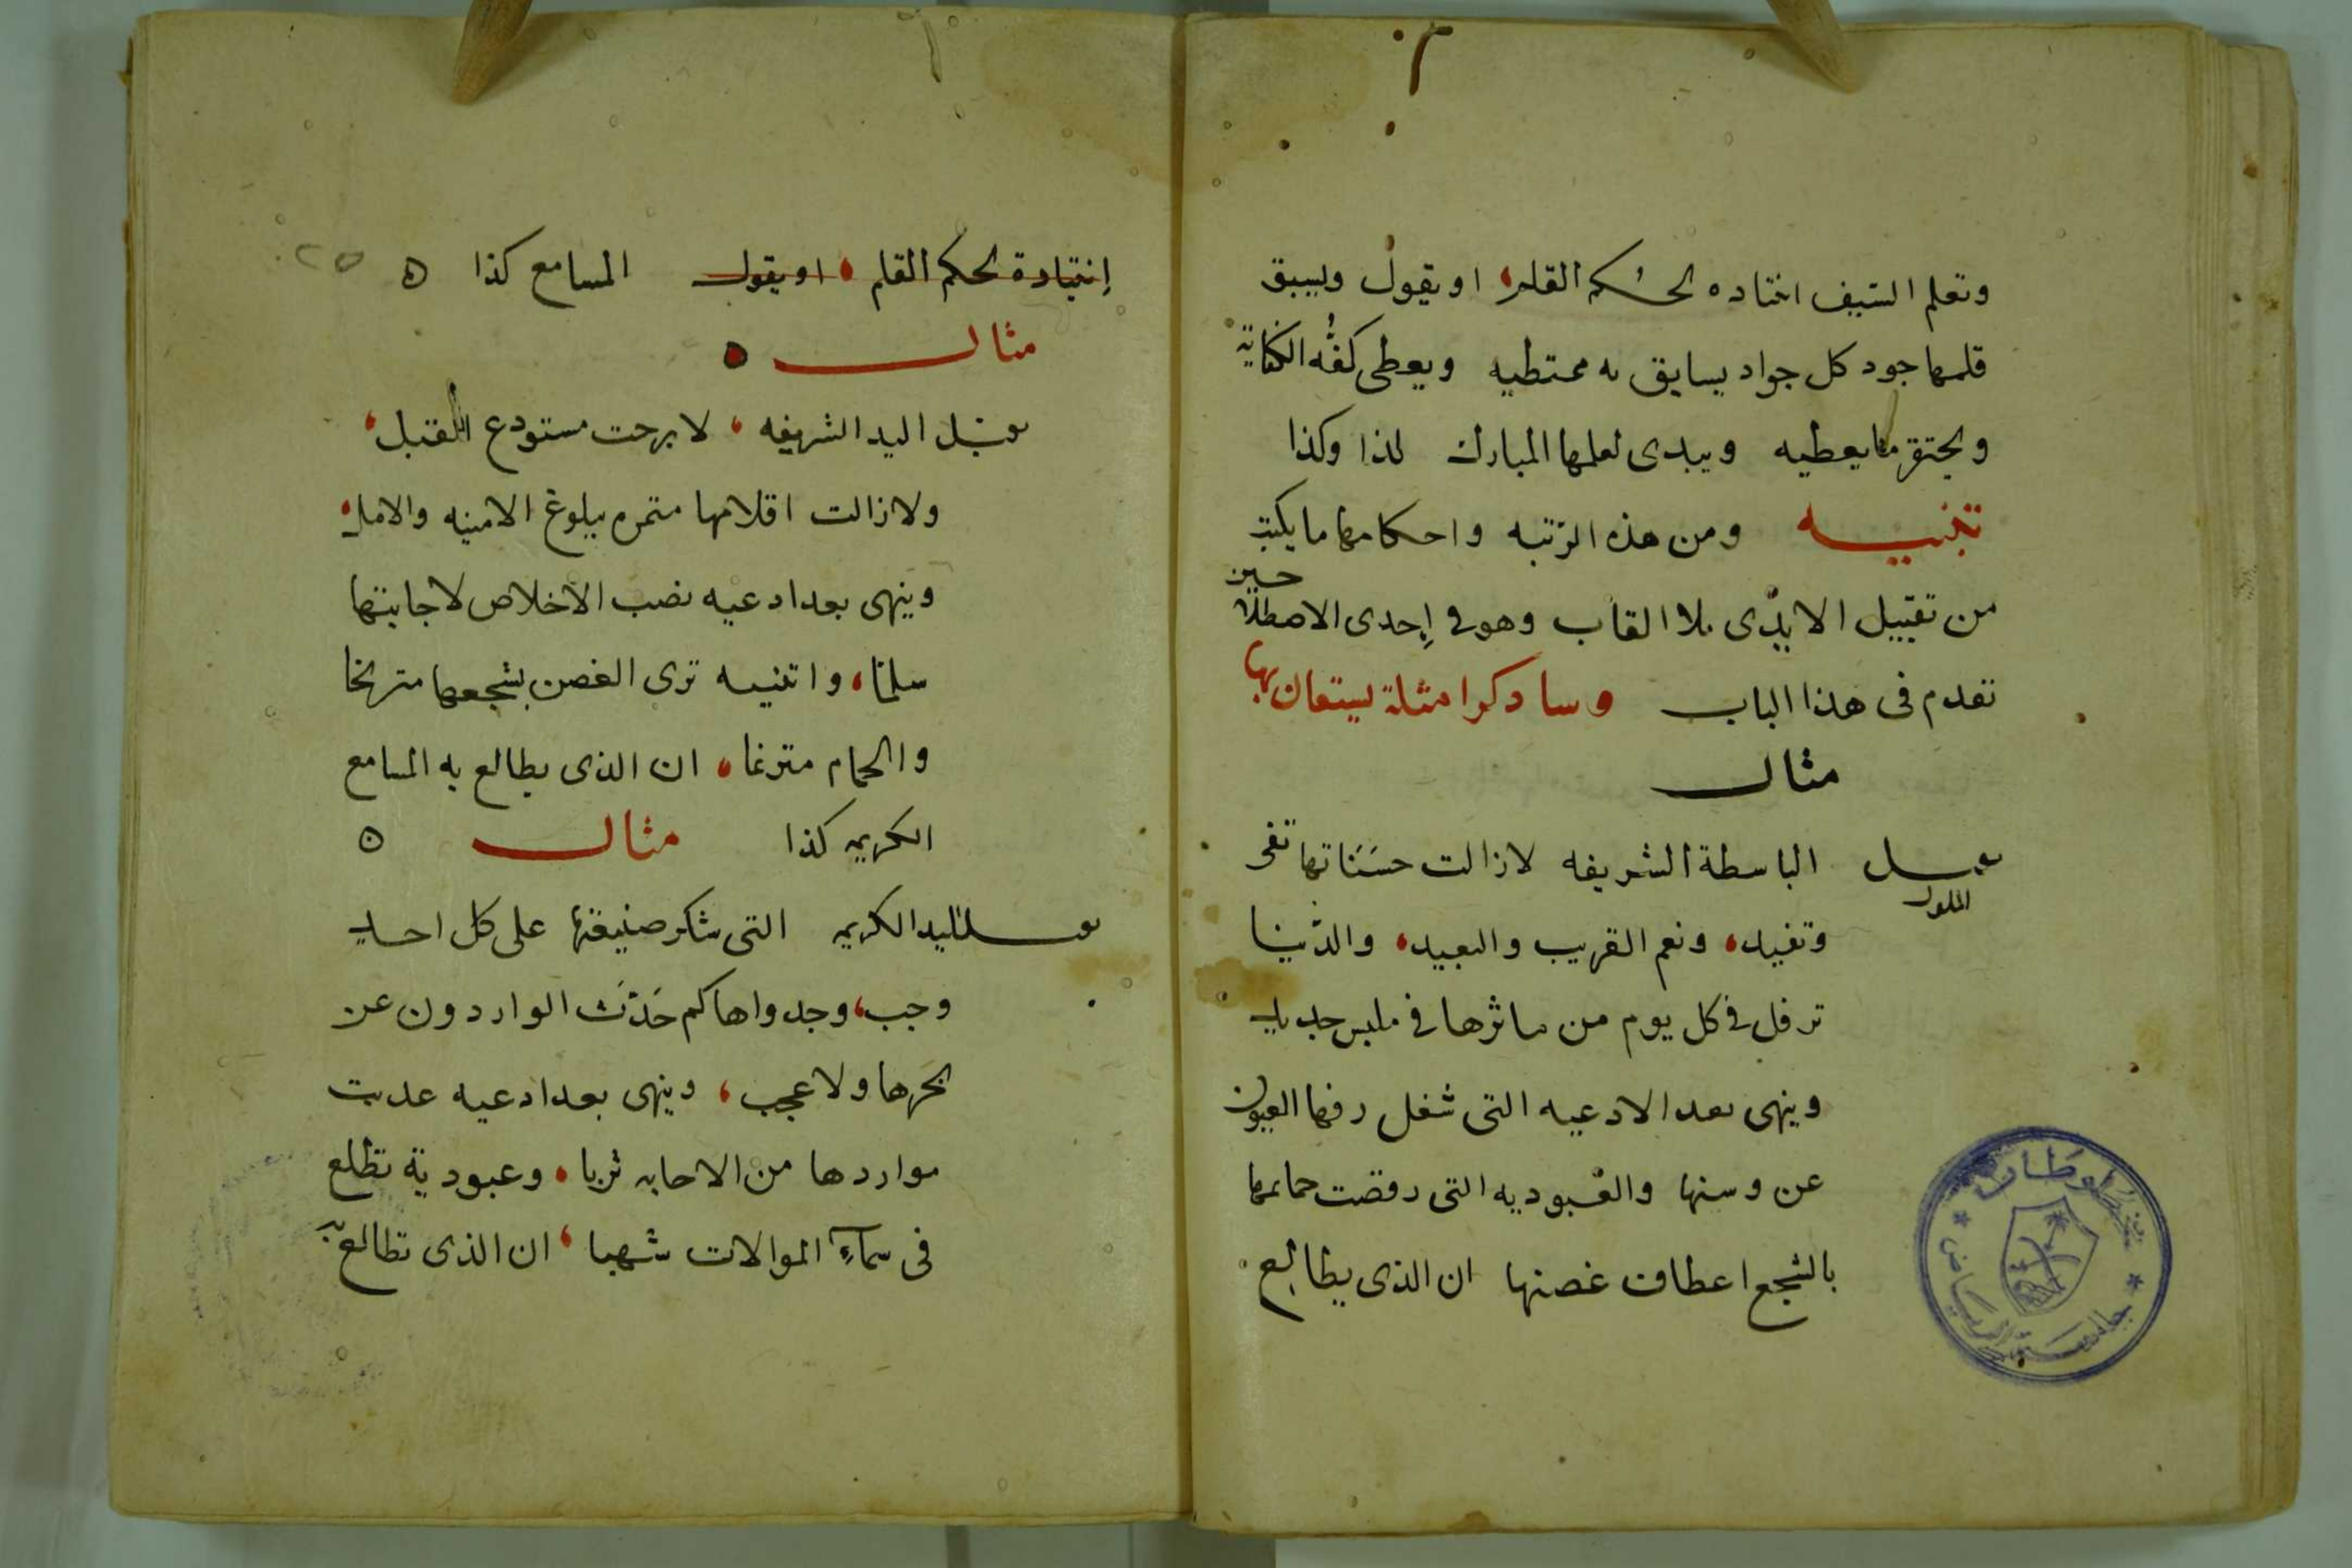 وتعلم السيف انتياده لحكم القلم، او يقول ويسبق
قلمها جود كل جواد يسابق به ممتطيه ويعطى كفُّه الكفاية
ويحتقر ما يعطيه ويبدى لعلمها المبارك كذا وكذا
تنبيـه ومن هذه الرتبه واحكامها ما يكتب
من تقبيل الايدى بلا القاب وهو فى إحدى الاصطلاحين
تقدم فى هذا الباب وسا ذكر امثلة يستعان بها
مثال
يقبل المملوك الباسطة الشريفه لا زالت حسَنَاتها
وتفيد، ونعم القريب والبعيد، والدُّنيا
ترفل فى كل يوم من ماثرها فى ملبس جديد
وينهى بعد الادعيه التى شغل العيون
عن وسنها والعُبوديه التى رقصت حمايمها
بالسجع اعطاف غصنها ان الذى يطالع
إنتيادة لحكم القلم، او يقول المسامع كذا ه
مثال ه
يقبّل اليد الشريفه، لا برحت مستودع القبل،
ولا زالت اقلامها مثمره ببلوغ الامنيه والامل،
وينهى بعد ادعيه نصب الاخلاص لاجابتها
سلما، واثنيه ترى الغصن بسجعها مترنحا
والحمام مترنما، ان الذى يطالع به المسامع
الكريمه كذا مثال ه
يقبل اليد الكريمه التى شكر صنيعتها على كل احد
وجب، وجدواها كم حَدّثَ الواردون عن
بحرها ولا عجب، وينهى بعد ادعيه عذبت
مواردها من الاجابه شربا، وعبودية تطلع
فى سمآءِ الموالات شهبا، ان الذى تطالع به